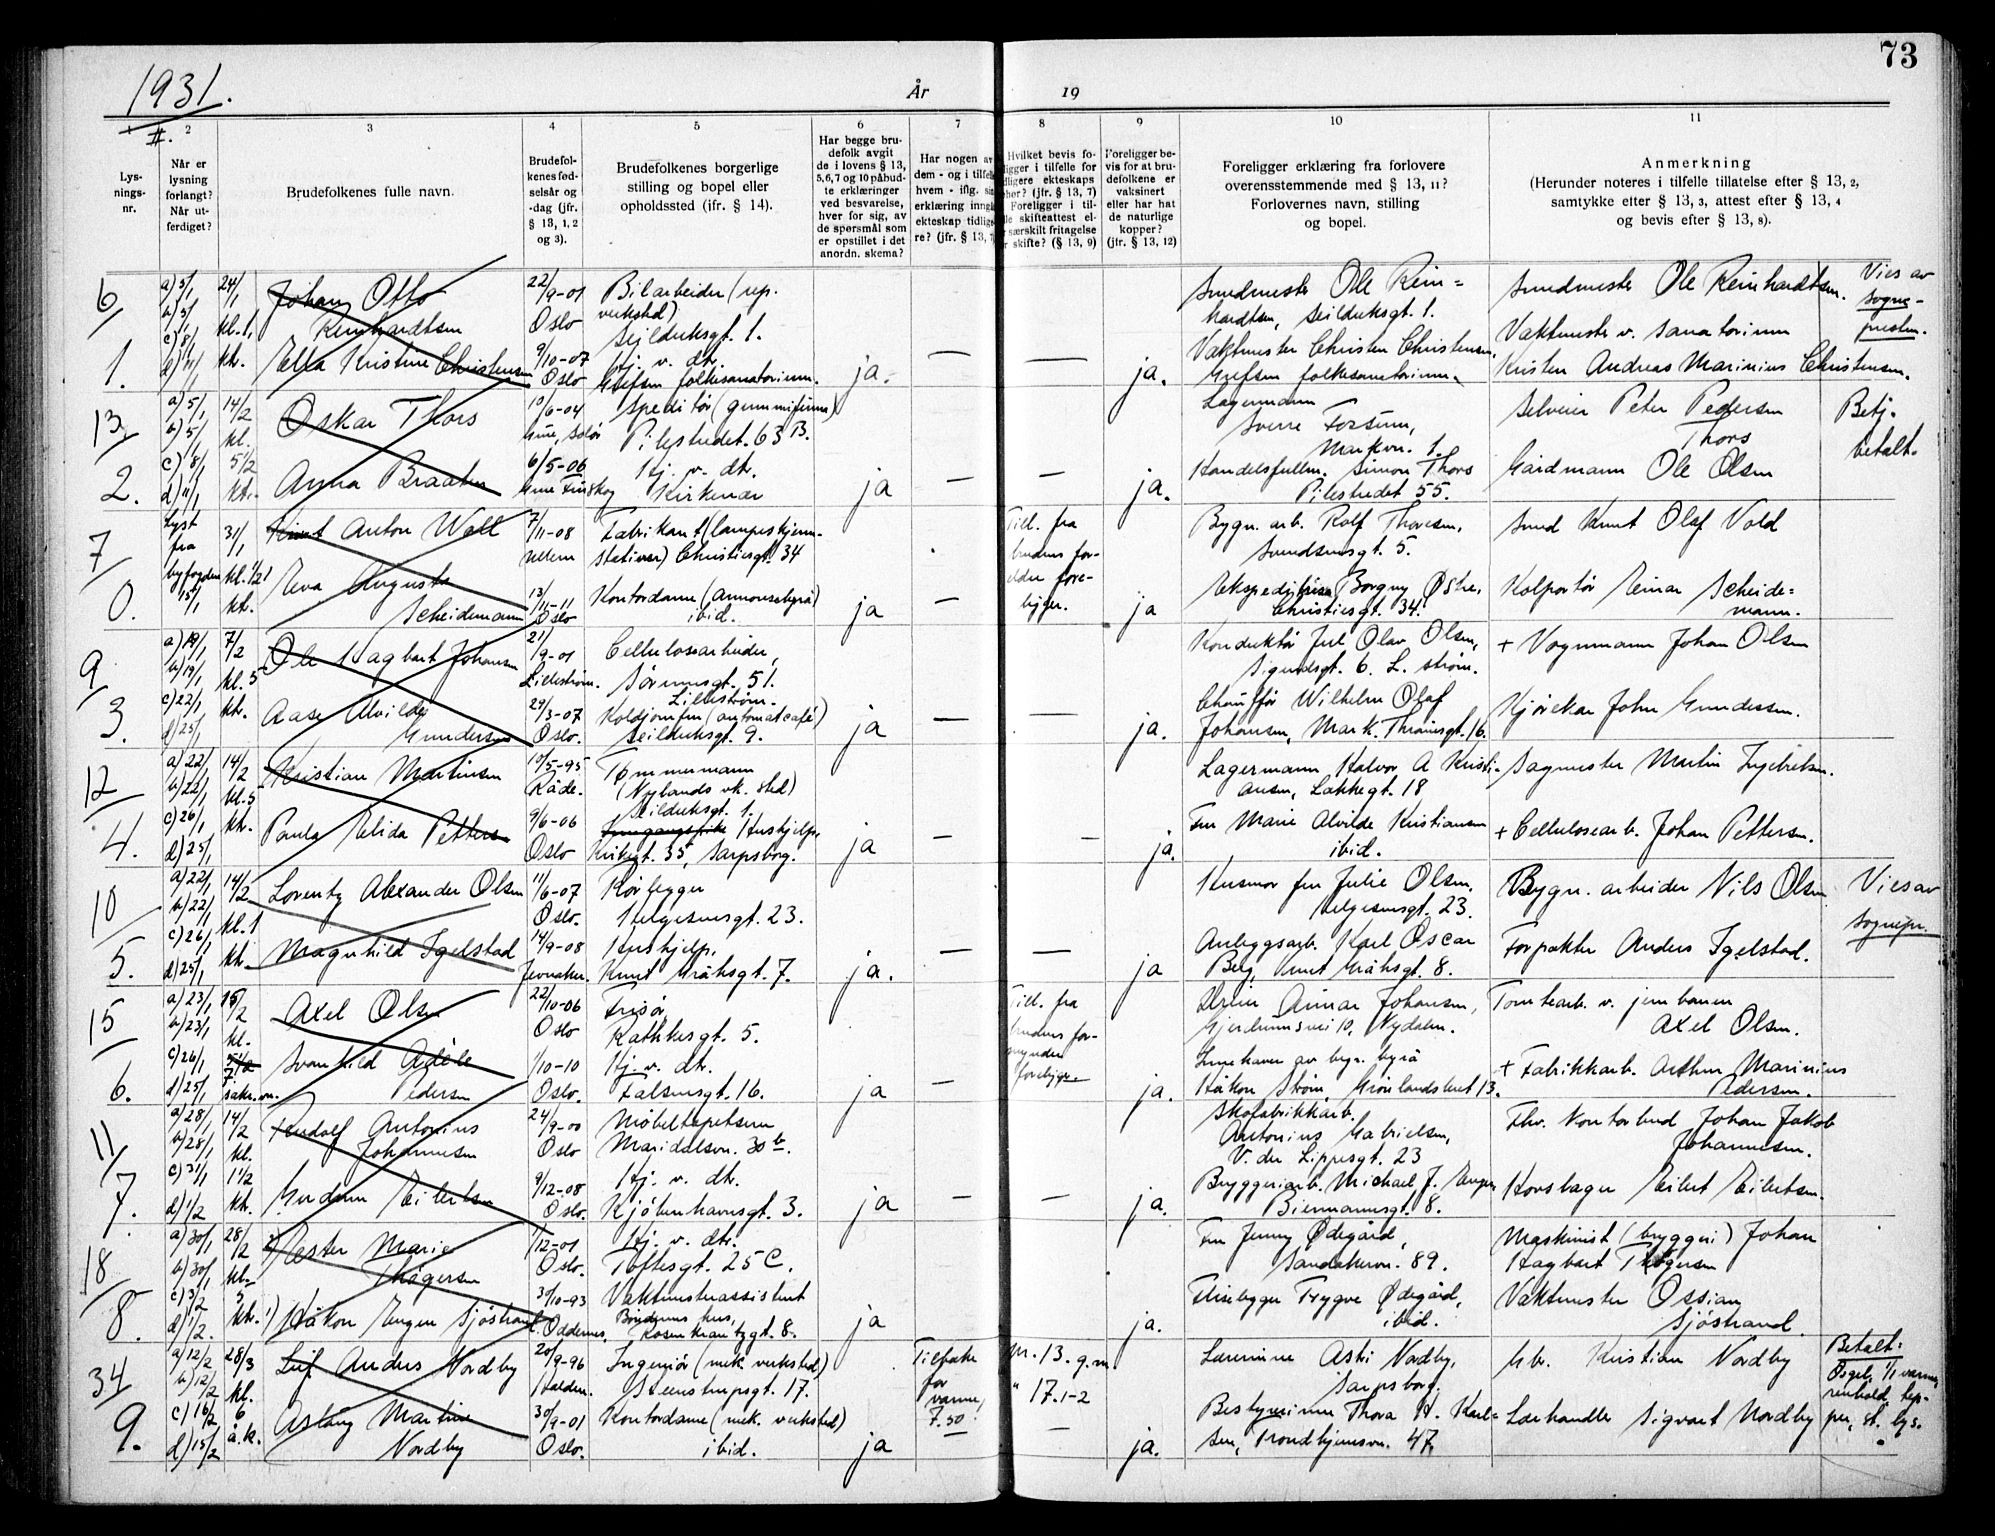 73
1931.
År
19
1
2
3
4
5
6
7
8
9
10
11
Lys-
nings-
nr.
Når er
lysning
forlangt?
Når ut-
ferdiget?
Brudefolkenes fulle navn.
Brudefol-
kenes fød-
selsår og
-dag (jfr.
§ 13, 1, 2
og 3).
Brudefolkenes borgerlige
stilling og bopel eller
opholdssted (ifr. § 14).
Har begge bru-
defolk avgit
de i lovens § 13,
5,6,7 og 10 påbud-
te erklæringer
ved besvarelse,
hver for sig, av
de spørsmål som
er opstillet i det
anordn. skema?
Har nogen av
dem - og i tilfelle
hvem - iflg. sin
erklæring inngå
ekteskap tidlige
re? (jfr. § 13, 7
Hvilket bevis fo-
ligger i tilfelle for
dligere ekteskaps
hør? (jfr. § 13, 7)
Foreligger i til-
le skifteattest el-
særskilt fritagelse
skifte? (§ 13, 9)
Foreligger be-
vis for at bru-
defolkene er
vaksinert
eller har hat
de naturlige
kopper?
(jfr. § 13, 12)
Foreligger erklæring fra forlovere
overensstemmende med § 13, 11?
Forlovernes navn, stilling
og bopel.
Anmerkning
(Herunder noteres i tilfelle tillatelse efter § 13, 2,
samtykke etter § 13, 3, attest efter § 13, 4
og bevis efter § 13, 8).
6/
1.
a) 5/1
b) 5/1
c) 8/1
d) 11/1
24/1
kl. 1,
ktr.
Johan Otto
Reinhardtsen
Ella Kristine Christensen
22/9-01
Oslo
9/10-07
Oslo
Bilarbeider (rep.
verksted)
Seilduksgt. 1.
Hj. v. dtr.
Grefsen folkesanatorium.
ja.
—
—
ja.
Smedmester Ole Rein=
hardtsen, Seilduksgt. 1.
Vaktmester Christen Christensen,
Grefsen folkesanatorium.
Smedmester Ole Reinhardtsen.
Vaktmester v. sanatorium
Kristen Andreas Marinius Christensen.
Vies av
sogne-
presten.
13/
2.
a) 5/1
b) 5/1
c) 8/1
d) 11/1
14/2
kl.
5 1/2
ktr.
Oskar Thors
Anna Braaten
10/6-04
Grue, Solør
6/5-06
Grue Finskog
Speditør (gummifirma)
Pilestredet 63 B.
Hj. v. dtr.
Kirkenær
ja
—
—
ja.
Lagermann
Sverre Fossum,
Markvn. 1.
Handelsfullm. Simon Thors
Pilestredet 55.
Selveier Peter Pedersen
Thors
Gårdmann Ole Olsen
Betj.
betalt.
7/
0.
Lyst
fra
byfogden
15/1
31/1
kl. 1/2 1
ktr.
Knut Anton Wold
Eva Auguste
Scheidemann
7/11-08
13/11-11
Oslo
Fabrikant (lampeskjerm-
stativer) Christiesgt. 34
Kontordame (annonsebyrå)
ibid.
ja
—
Till. fra
brudens for-
eldre fore-
ligger.
ja
Bygn. arb. Rolf Thoresen,
Svendsensgt. 5.
Ekspeditrise Borgny Østre,
Christiesgt. 34.
Smed Knut Olaf Vold
Kolportør Einar Scheide-
mann.
9/
3.
a) 19/1
b) 19/1
c) 22/1
d) 25/1
7/2
kl. 5
ktr.
Ole Hagbart Johansen
Aase Alvilde
Gundersen
21/9-01
Lillestrøm.
29/3-07
Oslo.
Cellulosearbeider,
Sørumsgt. 51.
Lillestrøm.
Koldjomfru (automatcafé)
Seilduksgt. 9.
ja
—
—
ja.
Konduktør Jul. Olav Olsen,
Sigurdsgt. 6. L. strøm.
Chauffør Wilhelm Olaf
Johansen, Mark. Thranesgt. 16.
+ Vognmann Johan Olsen
Kjørekar John Gundersen.
12/
4.
a) 22/1
b) 22/1
c) 26/1
d) 25/1
14/2
kl. 5
ktr.
Kristian Martinsen
Paula Elida Petters
10/5-95
Råde.
9/6-06
Oslo
Tømmermann
(Nylands vk. sted)
Seilduksgt. 1.
Hushjelp,
Kirkegt. 35, Sarpsborg.
ja
—
—
ja.
Lagermann Halvor A Kristi-
ansen, Lakkegt. 18
Fru Marie Alvilde Kristiansen
ibid.
Sagmester Martin Ingebretsen.
+ Cellulosearb. Johan Pettersen.
10/
5.
a) 22/1
b) 22/1
c) 26/1
d) 25/1
14/2
kl. 1
ktr.
Lorentz Alexander Olsen
Magnhild Igelstad
11/6-07
Oslo.
14/9-08
Jevnaker.
Rørlegger
Helgesensgt. 23.
Hushjelp,
Knut Gråhsgt. 7.
ja.
—
—
ja
Husmor fru Julie Olsen,
Helgesensgt. 23.
Anleggsarb. Karl Oscar
Berg, Knut Gråhsgt. 8.
Bygn. arbeider Nils Olsen
Forpakter Anders Igelstad.
Vies av
sognepr.
15/
6.
a) 23/1
b) 23/1
c) 26/1
d) 25/1
15/2
kl.
7
Axel Olsen
Svanhild Adèle
Pedersen
22/10-06
Oslo
1/10-10
Oslo.
Frisør,
Rathkesgt. 5.
Hj. v. dtr.
Falsensgt. 16.
ja
—
Till. fra
brudens for-
mynder
foreligger.
ja.
Einar Johansen,
Gjerdrumsvei 10, Nydalen.
Innehaver av begr. byrå
Håkon Strøm, Grønlandsleret 13.
Tomtearb. v. jernbanen
Axel Olsen.
+ Fabrikkarb. Arthur Marinius
Pedersen.
11/
7.
a) 28/1
b) 28/1
c) 31/1
d) 1/2
14/2
kl.
1 1/2
ktr.
Rudolf Antonius
Johannesen
Gudrun Eilertsen
24/9-00
Oslo
9/12-08
Oslo.
Møbeltapetserer
Maridalsvn. 30 b.
Hj. v. dtr.
Kjøbenhavnsgt. 3.
ja
—
—
ja.
Skofabrikkarb.
Antonius Gabrielsen,
V. der Lippesgt. 23
Bryggeriarb. Michael J. Engen
Biermannsgt. 8.
Fhv. Kontorbud Johan Jakob
Johannesen.
Hovslager Eilert Eilertsen.
18/
8.
a) 30/1
b) 30/1
c) 3/2
d) 1/2.
28/2
kl.
5
ktr.
Ester Marie
Thøgersen
1) Håkon Jørgen Sjøstrand
1/12-01
Oslo.
30/10-93
Oddernes.
Hj. v. dtr.
Toftesgt. 25 C.
Vaktmesterassistent
Bøndenes hus,
Rosenkrantzgt. 8.
ja
ja.
Fru Jenny Ødegård,
Sandakervn. 89.
Flisebygger Trygve Ødegård,
ibid.
Maskinist (bryggeri) Johan
Hagbart Thøgersen
Vaktmester Ossian
Sjøstrand.
34/
9.
a) 12/2
b) 12/2
c) 16/2
d) 15/2
28/3
kl.
6
å.k.
Leif Anders Nordby
Aslaug Martine
Nordby
20/9-96
Halden.
30/9-01
Oslo.
Ingeniør (mek. verksted)
Steenstrupsgt. 17.
Kontordame (mek. verksted)
ibid.
ja
Tilbake
for
varme,
7.50
nr. 13. g.m.
" 17. 1-2
—
ja.
Lærerinne Aslri Nordby,
Sarpsborg.
Bestyrerinne Thora H. Karl=
sen, Trondhjemsvn. 47.
Gbr. Kristian Nordby
Lærhandler Sigvart Nordby
Betalt:
Orgel, 1/1 varme,
renhold, tep-
per, st. lys.